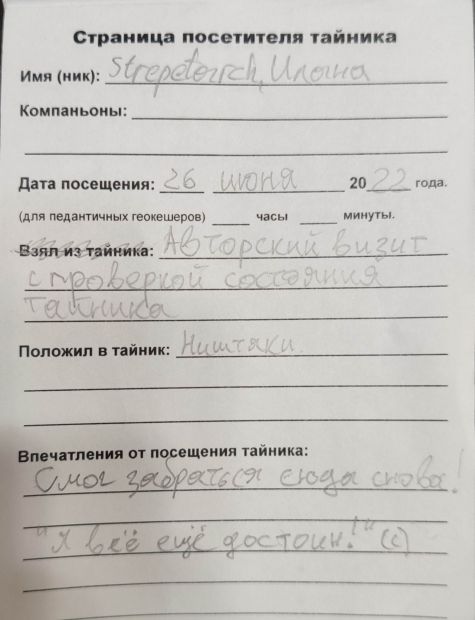 Страница посетителя тайника
Имя (ник): Strepetovich, Илона
Компаньоны:
Дата посещения: 26 июня 2022 года.
(для педантичных геокешеров) часы минуты.
Взял из тайника: Авторский визит
с проверкой состояния
тайника
Положил в тайник: Ништяки
Впечатления от посещения тайника:
Смог забраться сюда снова!
"Я всё ещё достоин!" (с)